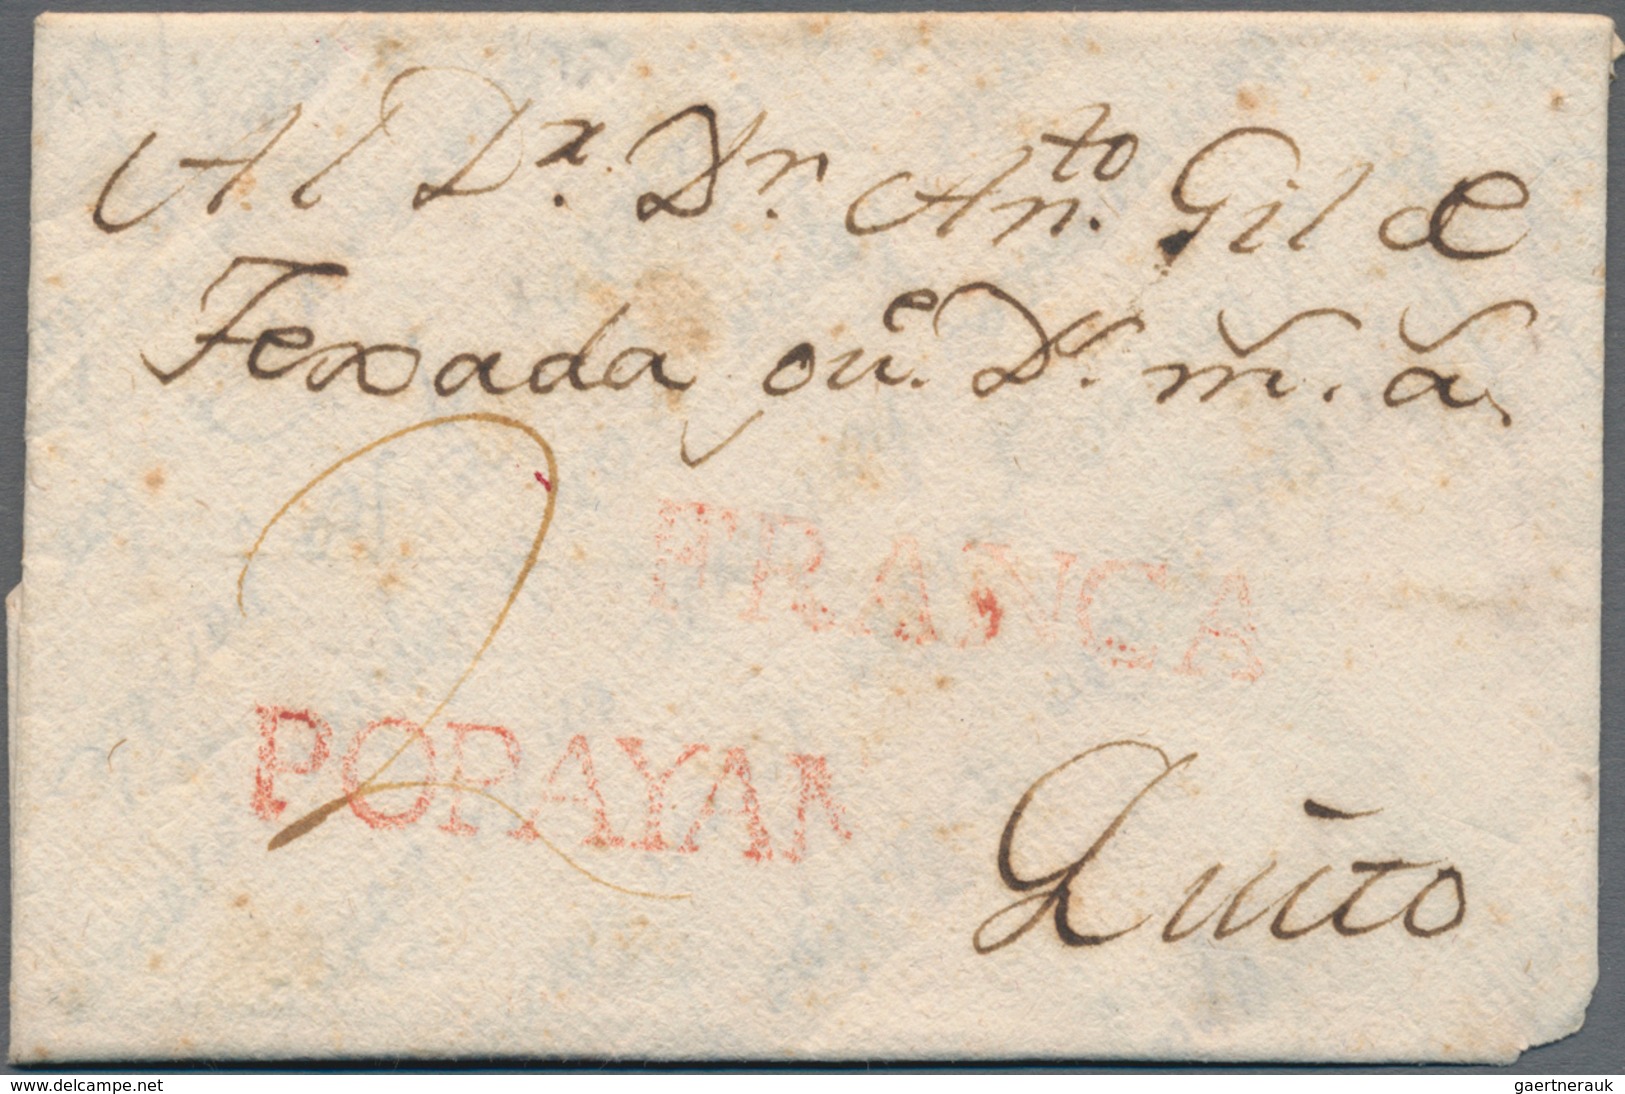 Al Dr. Dr. Anto. Gil de
Texada gue. Ds. m. a.
2
FRANCA
POPAYAN
Quito
www.delcampe.net
gaertnerauk